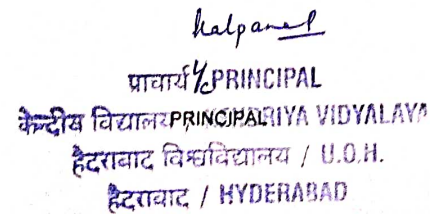 Kalpana
प्राचार्य I/c PRINCIPAL
केन्द्रीय विद्यालय PRINCIPAL RIYA VIDYALAYA
हैदराबाद विश्वविद्यालय / U.O.H.
हैदराबाद / HYDERABAD